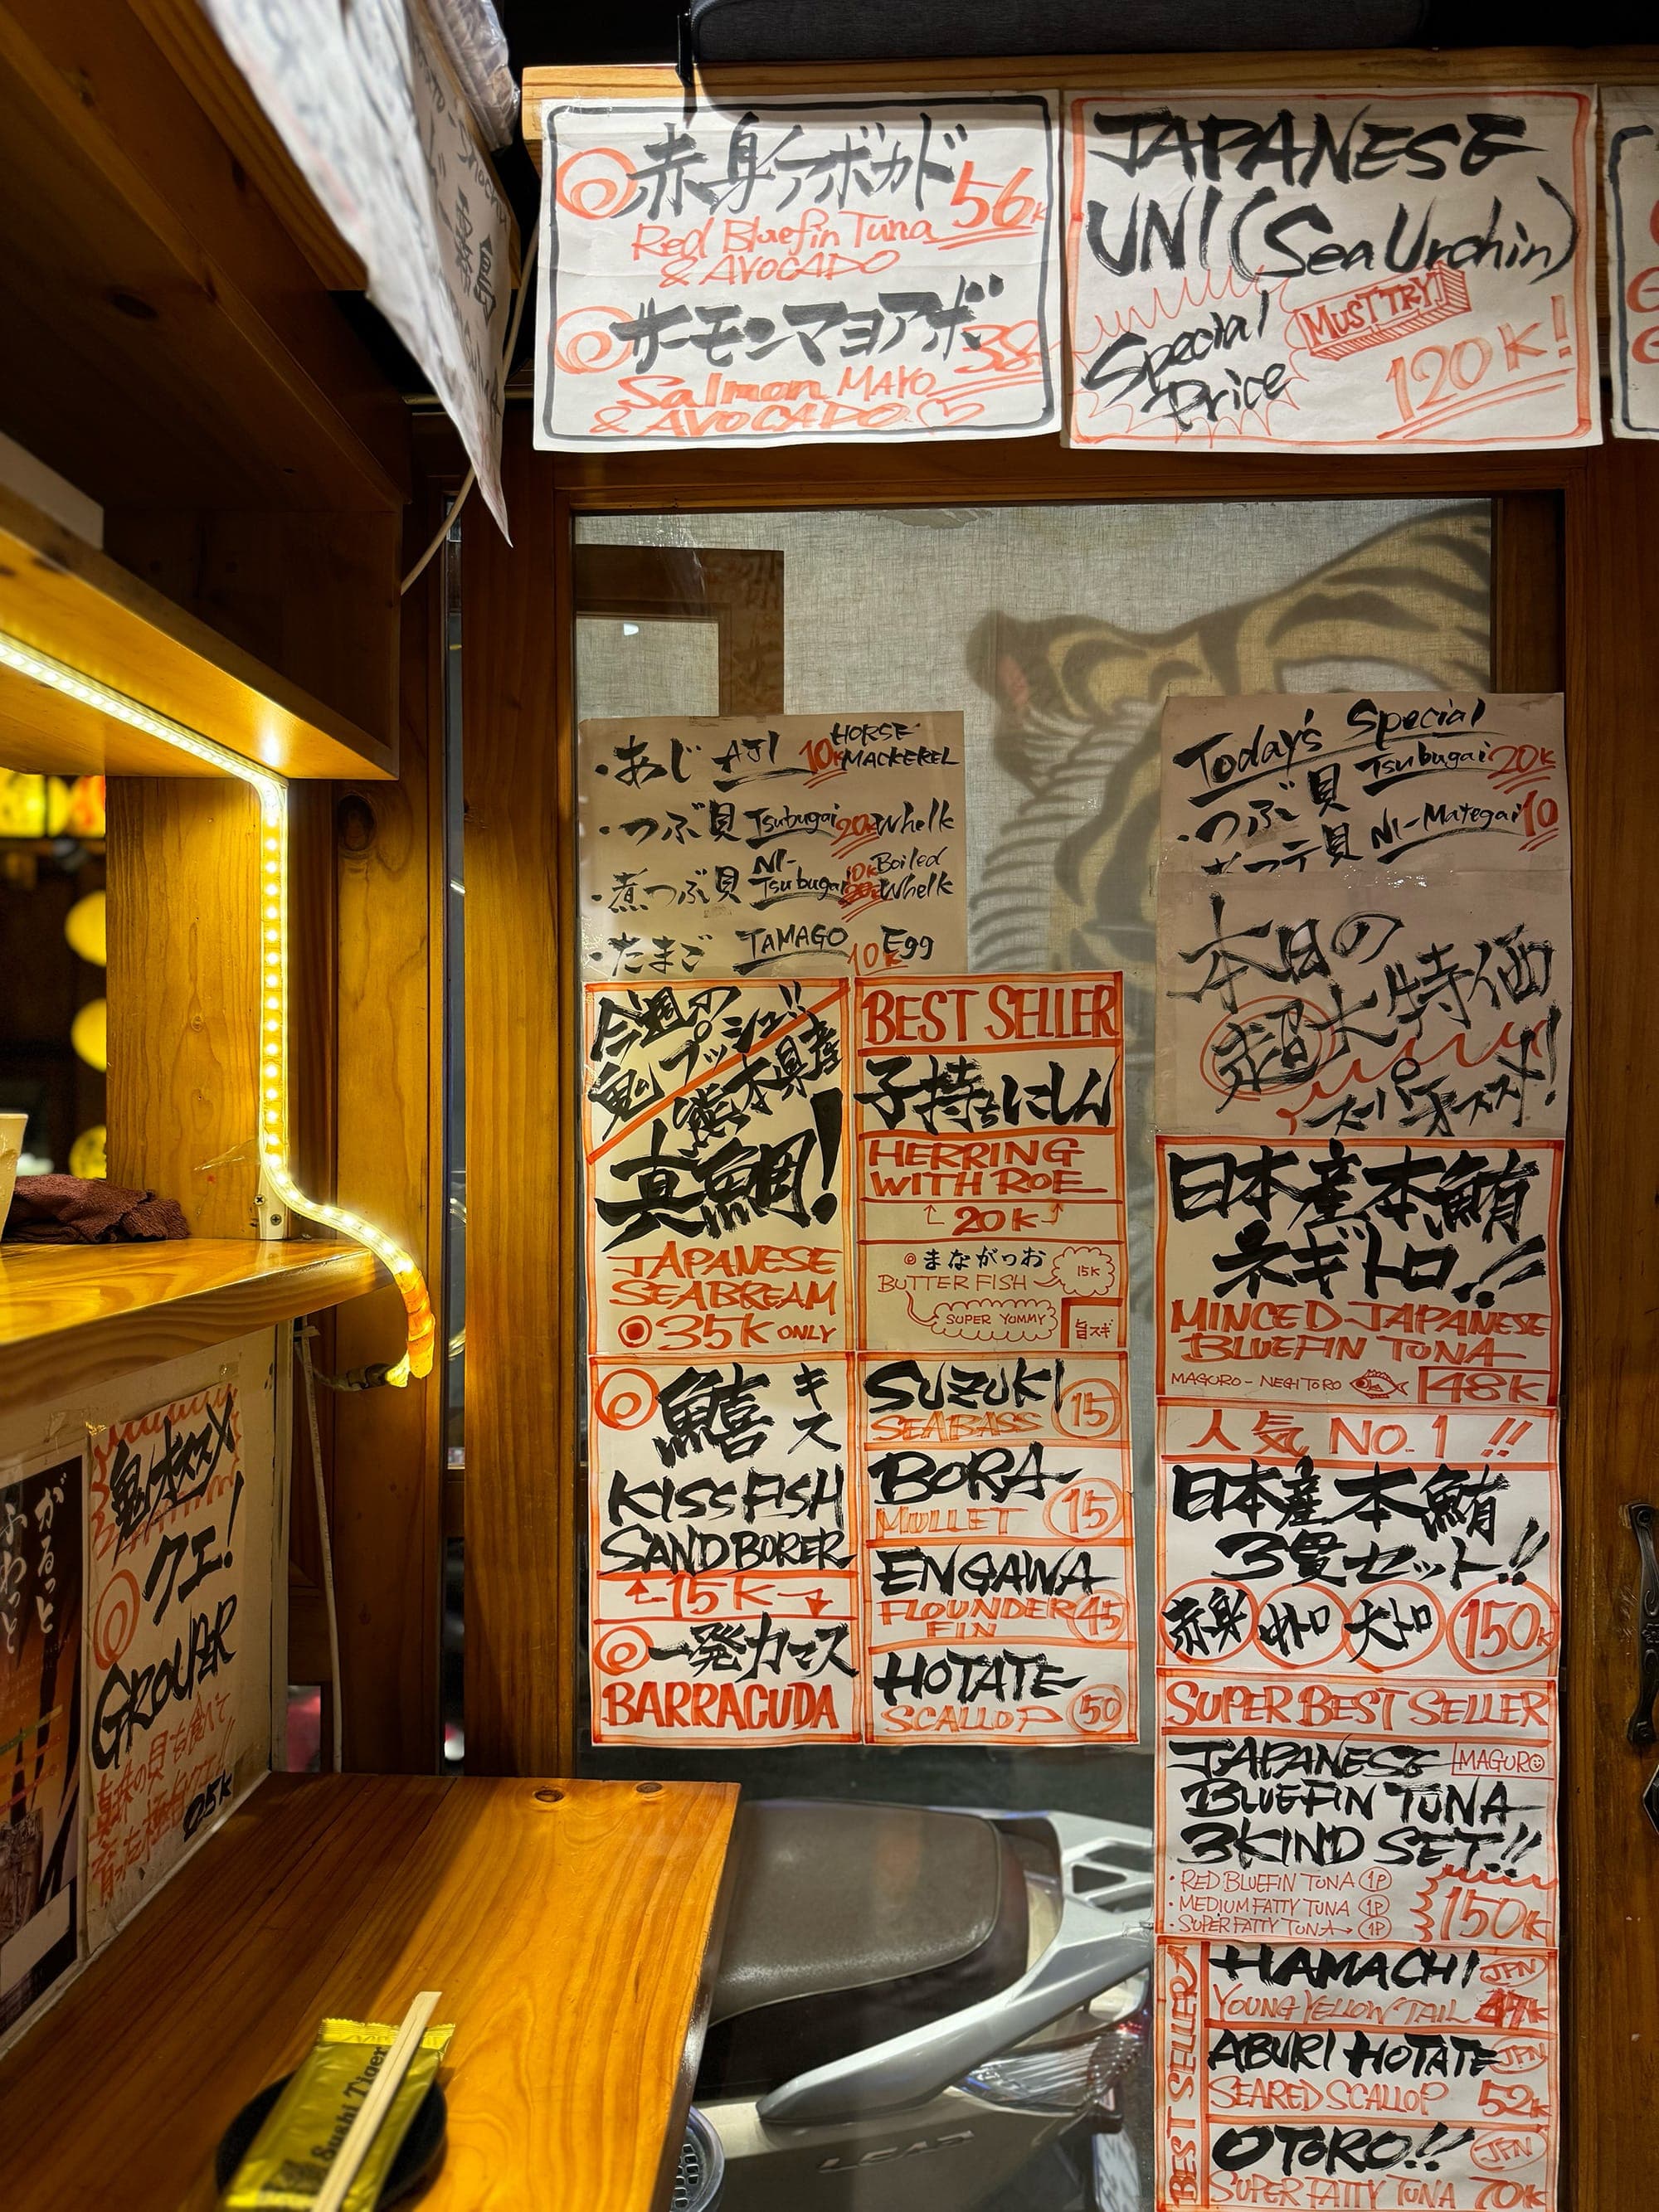 赤身アボカド 56K
Red Bluefin Tuna
& AVOCADO
サーモンマヨアボ 38
Salmon MAYO
& AVOCADO
JAPANESE
UNI (Sea Urchin)
MUST TRY!
Special
Price
120K!
・あじ AJI 10K HORSE MACKEREL
・つぶ貝 Tsubugai 20K Whelk
・煮つぶ貝 NI-Tsubugai 10K Boiled Whelk
・たまご TAMAGO 10K Egg
Today's Special
・つぶ貝 Tsubugai 20K
マテ貝 NI-Mategai 10
本日の
超大特価
スーパーオススメ!
今週の
鬼プッシュ!!
熊本県産
真鯛!
JAPANESE
SEABREAM
35K ONLY
鱚 キス
KISS FISH
SAND BORER
15K
一発カマス
BARRACUDA
BEST SELLER
子持ちにしん
HERRING
WITH ROE
20K
まながつお
BUTTER FISH 15K
SUPER YUMMY
旨スギ
SUZUKI
SEABASS 15
BORA
MULLET 15
ENGAWA
FLOUNDER FIN 45
HOTATE
SCALLOP 50
日本産本鮪
ネギトロ!!
MINCED JAPANESE
BLUEFIN TUNA
MAGURO-NEGITORO 48K
人気 NO.1 !!
日本産本鮪
3貫セット!!
赤身 中トロ 大トロ 150K
SUPER BEST SELLER
JAPANESE MAGURO
BLUEFIN TUNA
3KIND SET!!
・RED BLUEFIN TUNA 1P
・MEDIUM FATTY TUNA 1P
・SUPER FATTY TUNA → 1P
150K
BEST SELLER
HAMACHI JPN
YOUNG YELLOW TAIL 47K
ABURI HOTATE JPN
SEARED SCALLOP 52K
OTORO!! JPN
SUPER FATTY TUNA 70K
鬼オススメ
クエ!
GROUPER
25K
がるっと
ふわっと
Sushi Tiger
LEAD